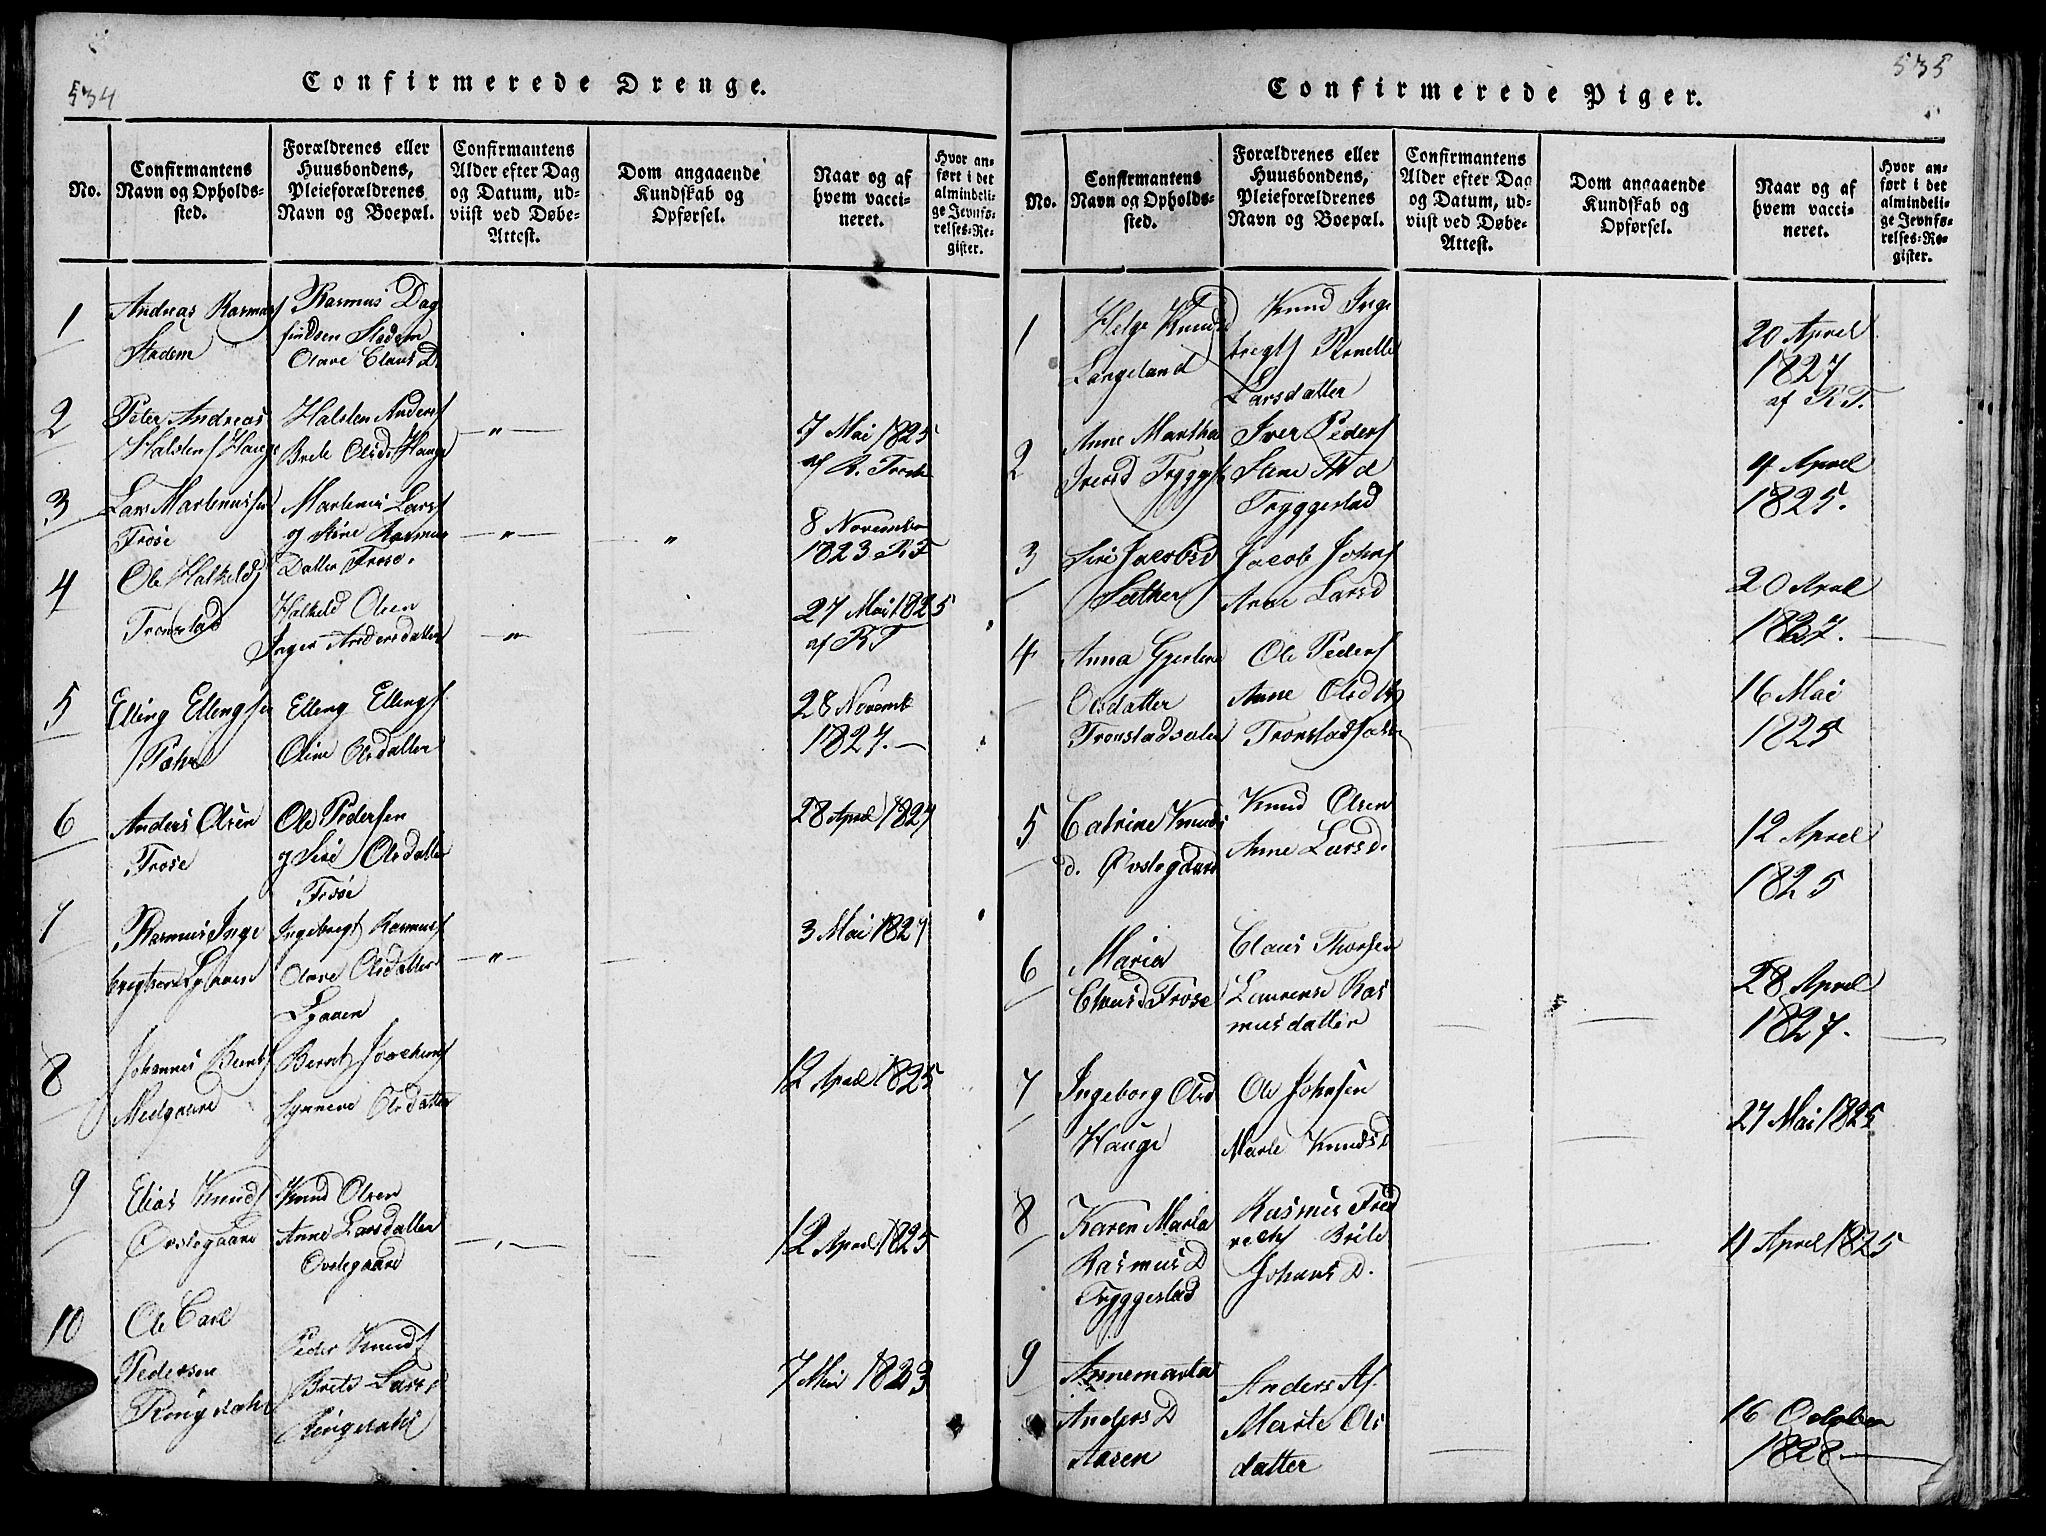 534
Confirmerede Drenge.
No.
Confirmantens
Navn og Opholds-
sted.
Forældrenes eller
Huusbondens,
Pleieforældrenes
Navn og Boepæl.
Confirmantens
Alder efter Dag
og Datum, ud-
viist ved Døbe-
Attest.
Dom angaaende
Kundskab og
Opførsel.
Naar og af
hvem vacci-
neret.
Hvor an-
ført i det
almindeli-
ge Jevnfø-
relses-Re-
gister.
1
Andreas Rasmus
Stadem
Rasmus Dag
findsen Stadem
Olave Claus D.
2
Peter Andreas
Halsten Hauge
Halsten Anders
Brite Olsd Hauge
7 Mai 1825
af R.
3
Lars Martinussen
Frøse
Martinus Lars
og Stine Rasmus
Datter Frøse.
8 November
1823 RT
4
Ole Halkeld
Tronstad
Halkeld Olsen
Inger Andersdatter
27 Mai 1825
af RT
5
Elling Ellingsen
Elling Ellings
Oline Olsdatter
28 Novemb
1827.
6
Anders Olsen
Frøse
Ole Pedersen
og Siri Olsdatter
Frøse
28 April 1827
7
Rasmus Inge
brigtsen Lyaaen
Ingebrigt Rasmus
Olave Olsdatter
Lyaaen
3 Mai 1827
8
Johannes Bernts
Melgaard
Bernt Jochums
Synneve Olsdatter
12 April 1825
9
Elias Knuds
Ovstegaard
Knud Olsen
Anne Larsdatter
Ovstegaard
12 April 1825
10
Ole Carl
Pedersen
Ringdahl
Peder Knuds
Brite Lars
Ringdahl
7 Mai 1823
535
Confirmerede Piger.
No.
Confirmantens
Navn og Opholds-
sted.
Forældrenes eller
Huusbondens,
Pleieforældrenes
Navn og Boepæl.
Confirmantens
Alder efter Dag
og Datum, ud-
viist ved Døbe-
Attest.
Dom angaaende
Kundskab og
Opførsel.
Naar og af
hvem vacci-
neret.
Hvor an-
ført i det
almindeli-
ge Jevnfø-
relses-Re-
gister.
1
Helge Knudsd
Langeland
Knud Inge
brigts Pernelle
Larsdatter
20 April
1827
af RT.
2
Anne Martha
Iversd Tryggst
Iver Peders
Stine
Tryggestad
4 April
1825.
3
Siri Jacobsd
Sæther
Jacob Johns
Anne Larsd
20 April
4
Anna Gjertine
Olsdatter
Tronstadsæter
Ole Peders
Anne Olsd
Tronstadsæter
16 Mai
1825
5
Catrine Knuds
d. Øvstegaard
Knud Olsen
Anne Larsd.
12 April
1825
6
Maria
Clausd Frøse
Claus Thorsen
Laurense Ras
musdatter
28 April
1827.
7
Ingeborg Olsd
Hauge
Ole Johnsen
Marte Knudsd
27 Mai 1825
8
Karen Marta
Rasmus D
Tryggestad
Rasmus Fred
rechs Brite
Johans D.
4 April 1825
9
Annemarta
Anders D
Aasen
Anders As.
Marte Ols
datter
16 October
1828